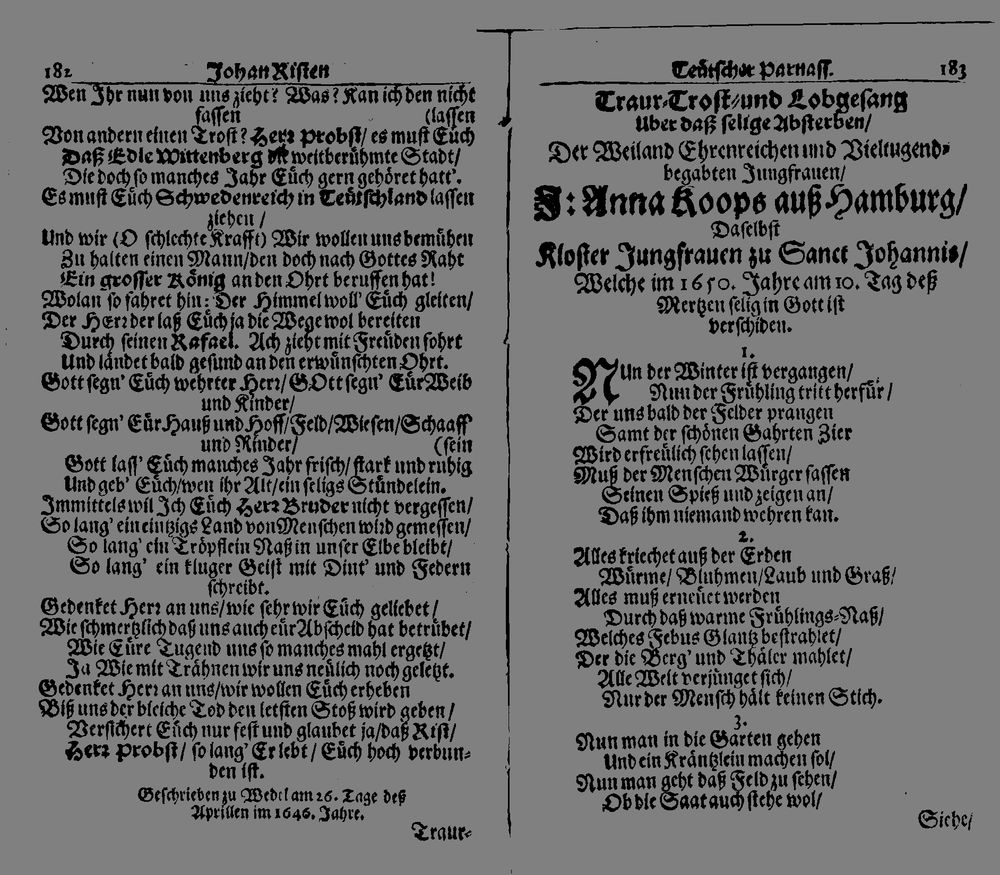 182 Johan Risten
Wen Ihr nun von uns zieht? Was? Kan ich den nicht
fassen (lassen
Von andern einen Trost? Herr Probst/ es must Eüch
Daß Edle Wittenberg die weitberühmte Stadt/
Die doch so manches Jahr Eüch gern gehöret hatt'.
Es must Eüch Schwedenreich in Teütschland lassen
ziehen /
Und wir (O schlechte Krafft) Wir wollen uns bemühen
Zu halten einen Mann/den doch nach Gottes Raht
Ein grosser König an den Ohrt beruffen hat!
Wolan so fahret hin: Der Himmel woll' Eüch gleiten/
Der Herr der laß Eüch ja die Wege wol bereiten
Durch seinen Rafael. Ach zieht mit Freüden fohrt
Und ländet bald gesund an den erwünschten Ohrt.
Gott segn' Eüch wehrter Herr/ GOtt segn' Eür Weib
und Kinder/
Gott segn' Eür Hauß und Hoff/Feld/Wiesen/Schaaff
und Rinder/ (sein
Gott lass' Eüch manches Jahr frisch/ stark und ruhig
Und geb' Eüch/wen ihr Alt/ein seligs Stündelein.
Immittels wil Ich Eüch Herr Bruder nicht vergessen/
So lang' ein eintzigs Land von Menschen wird gemessen/
So lang' ein Tröpflein Naß in unser Elbe bleibt/
So lang' ein kluger Geist mit Dint' und Federn
schreibt.
Gedenket Herr an uns/wie sehr wir Eüch geliebet/
Wie schmertzlich daß uns auch eür Abscheid hat betrübet/
Wie Eüre Tugend uns so manches mahl ergetzt/
Ja Wie mit Trähnen wir uns neülich noch geletzt.
Gedenket Herr an uns/wir wollen Eüch erheben
Biß uns der bleiche Tod den letsten Stoß wird geben/
Versichert Eüch nur fest und glaubet ja/daß Rist/
Herr Probst/ so lang' Er lebt/ Eüch hoch verbun-
den ist.
Geschrieben zu Wedel am 26. Tage deß
Aprillen im 1646. Jahre.
Traur-
Teütscher Parnass. 183
Traur-Trost-und Lobgesang
Uber daß selige Absterben/
Der Weiland Ehrenreichen und Vieltugend-
begabten Jungfrauen/
J: Anna Koops auß Hamburg/
Daselbst
Kloster Jungfrauen zu Sanct Johannis/
Welche im 1650. Jahre am 10. Tag deß
Mertzen selig in Gott ist
verschiden.
1.
NUn der Winter ist vergangen/
Nun der Frühling tritt herfür/
Der uns bald der Felder prangen
Samt der schönen Gahrten Zier
Wird erfreülich sehen lassen/
Muß der Menschen Würger fassen
Seinen Spieß und zeigen an/
Daß ihm niemand wehren kan.
2.
Alles kriechet auß der Erden
Würme/ Bluhmen/Laub und Graß/
Alles muß erneüet werden
Durch daß warme Frühlings-Naß/
Welches Febus Glantz bestrahlet/
Der die Berg' und Thäler mahlet/
Alle Welt verjünget sich/
Nur der Mensch hält keinen Stich.
3.
Nun man in die Garten gehen
Und ein Kräntzlein machen sol/
Nun man geht daß Feld zu sehen/
Ob die Saat auch stehe wol/
Siehe/